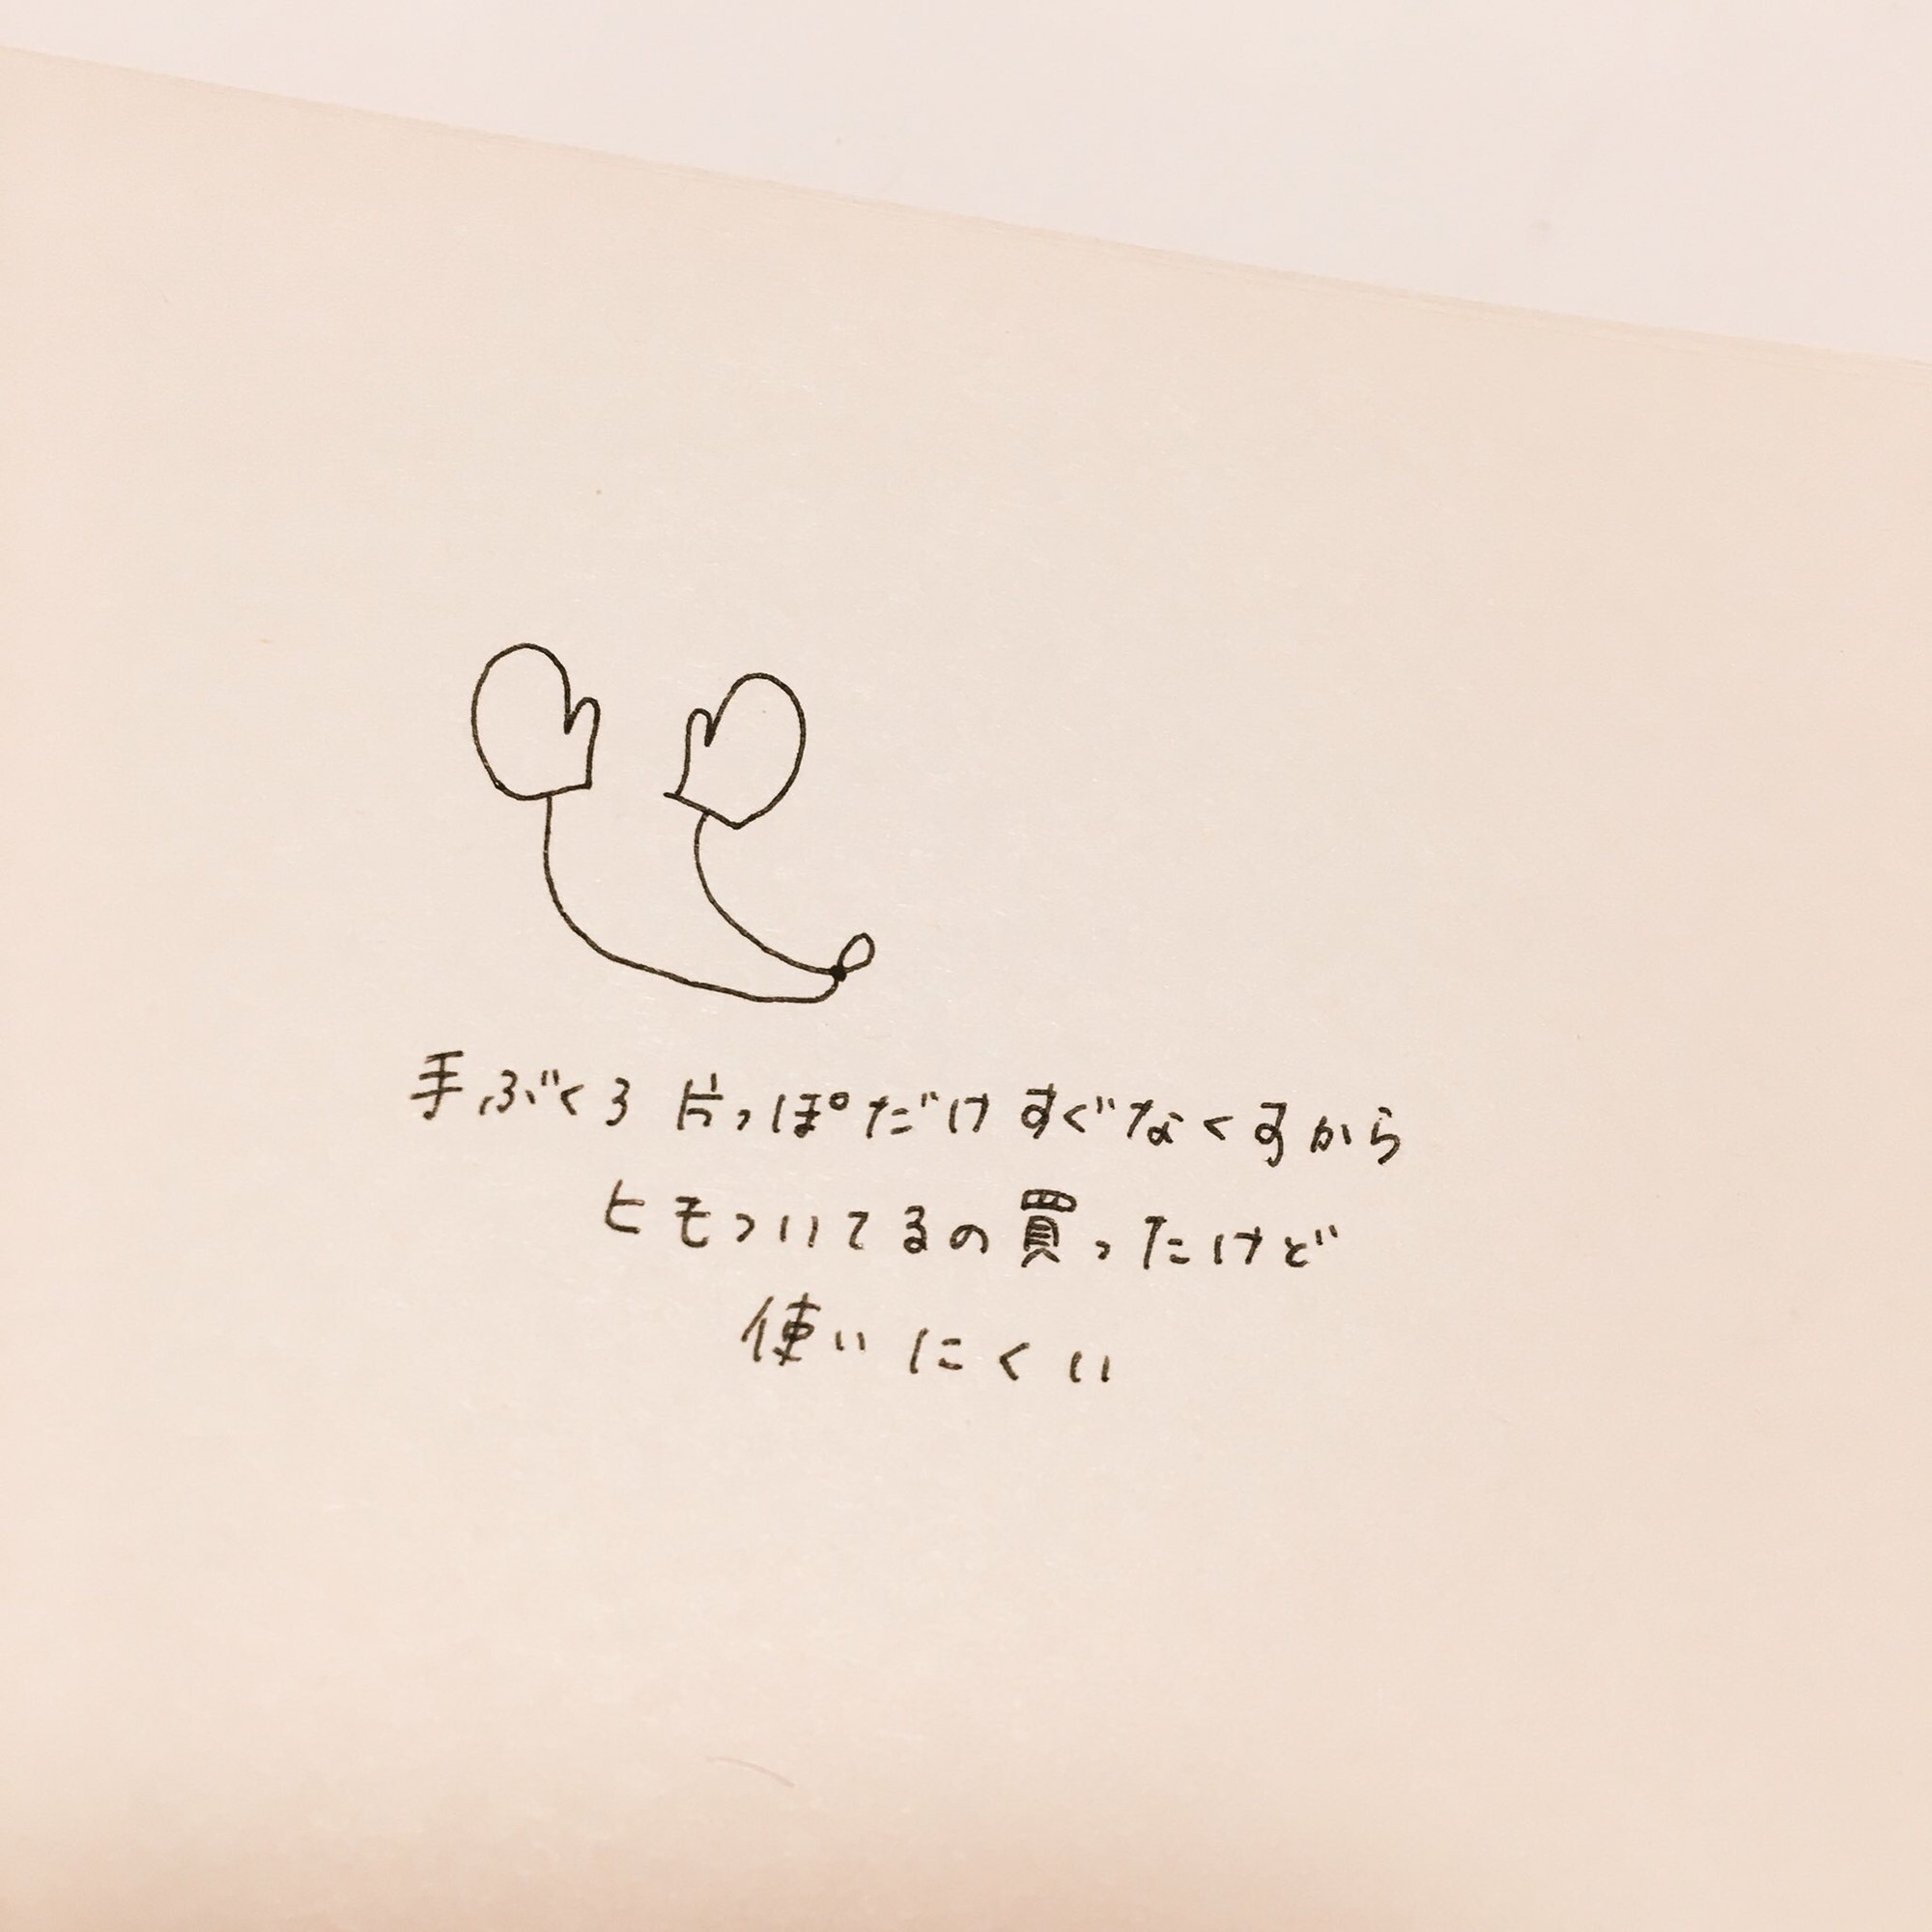 手ぶくろ 片っぽだけ すぐなくすから
ヒモついてるの買ったけど
使いにくい